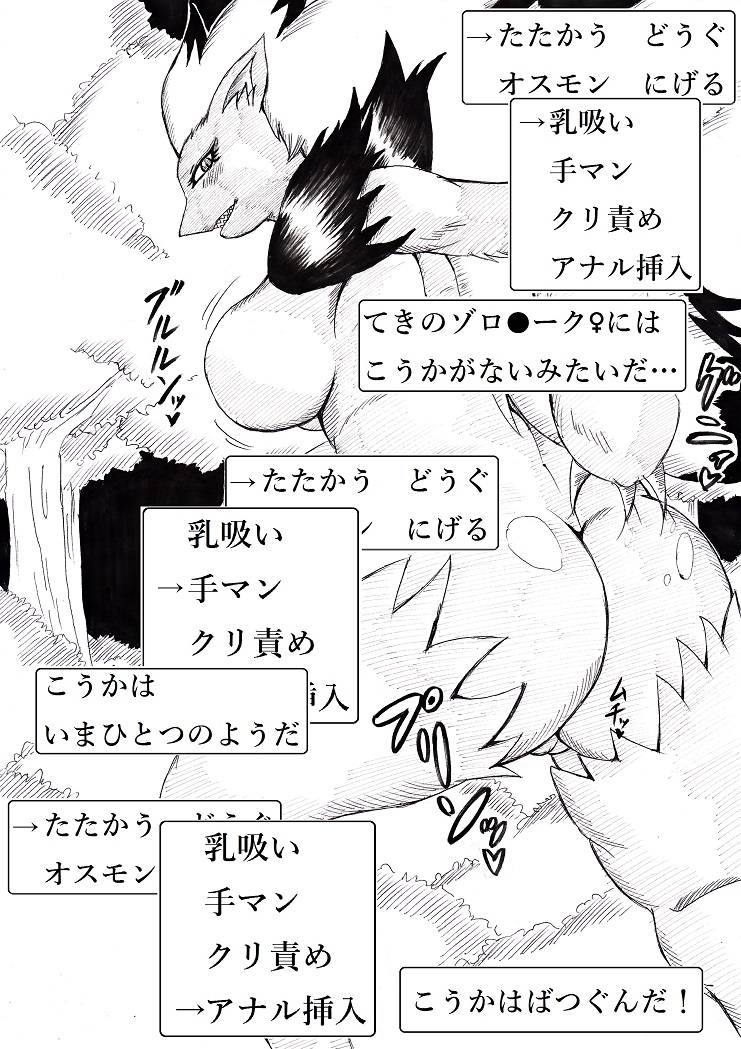 →たたかう　どうぐ
オスモン　にげる
→乳吸い
手マン
クリ責め
アナル挿入
てきのゾロ●ーク♀には
こうかがないみたいだ…
ブルルンッ
グニュッ♡
→たたかう　どうぐ
ン　にげる
乳吸い
→手マン
クリ責め
挿入
こうかは
いまひとつのようだ
プリンッ♡
ムチッ♡
→たたかう　どうぐ
オスモン
乳吸い
手マン
クリ責め
→アナル挿入
こうかはばつぐんだ！